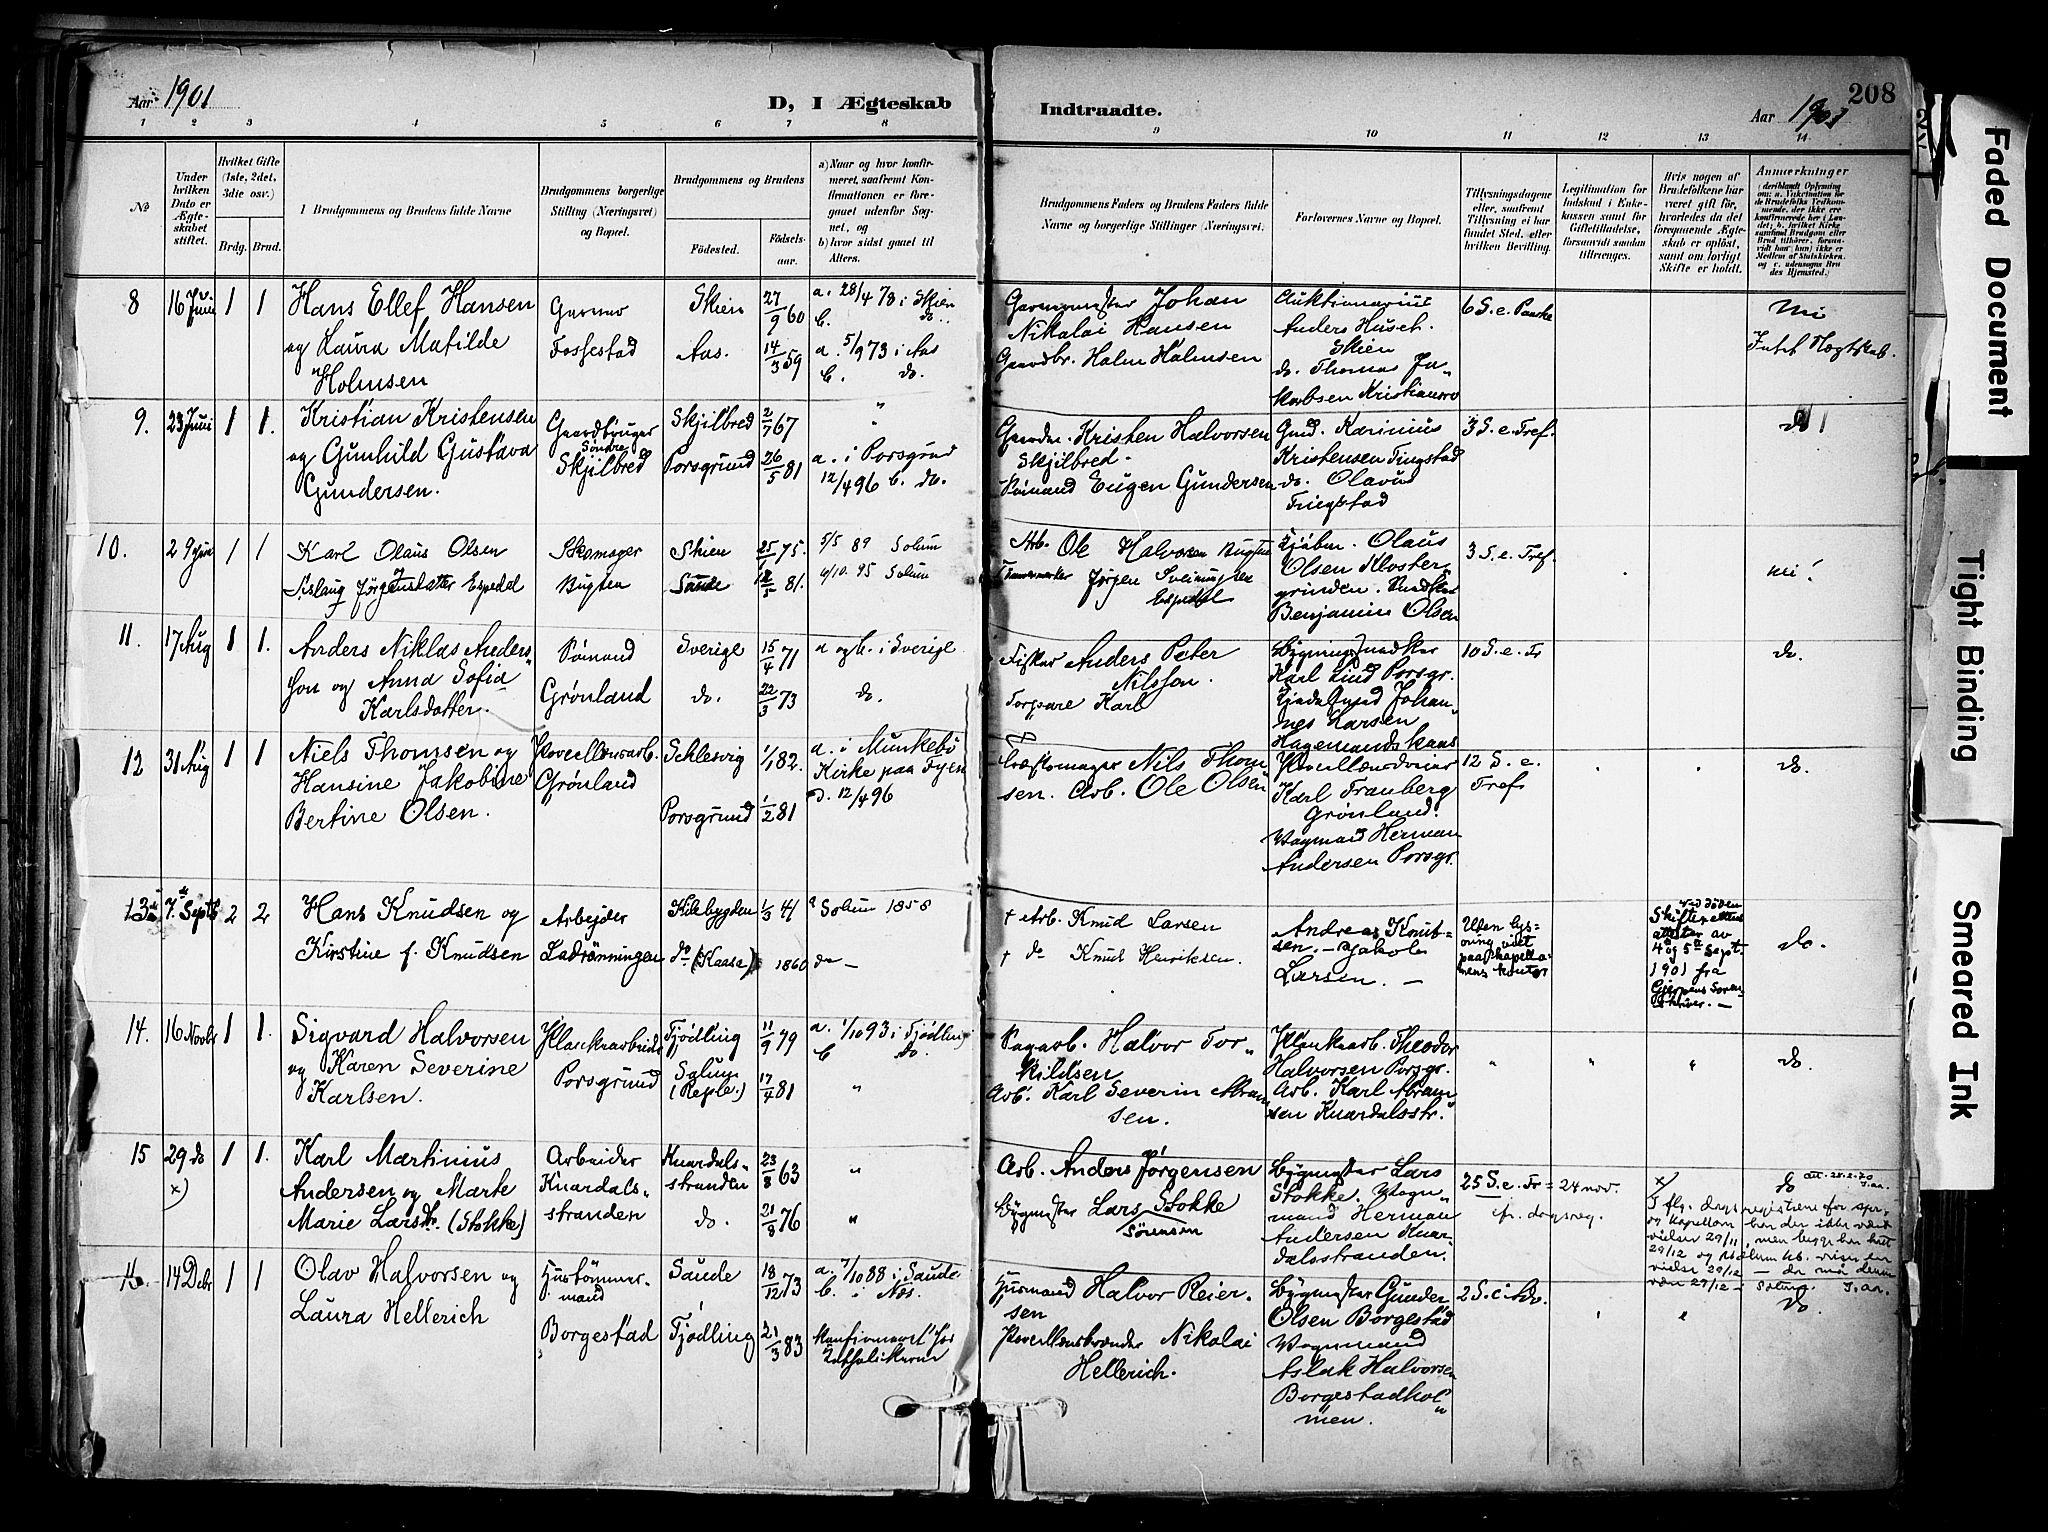 Aar 1901
D, I Ægteskab
Indtraadte.
Aar 1901
208
1 2 3 4 5 6 7 8 9 10 11 12 13 14
No
Under hvilken Dato er Ægteskabet stiftet.
Hvilket Gifte (1ste, 2det, 3die osv.)
Brdg. Brud.
1 Brudgommens og Brudens fulde Navne
Brudgommens borgerlige Stilling (Næringsvei) og Bopæl.
Brudgommens og Brudens
Fødested.
Fødselsaar.
a) Naar og hvor konfirmeret, saafremt Konfirmationen er foregaaet udenfor Sognet, og
b) hvor sidst gaaet til Alters.
Brudgommens Faders og Brudens Faders fulde Navne og borgerlige Stillinger (Næringsvei.
Forlovernes Navne og Bopæl.
Tillysningsdagene eller, saafremt Tillysning ei har fundet Sted, efter hvilken Bevilling.
Legitimation for Indskud i Enkekassen samt for Giftetilladelse, forsaavidt saadan tiltrænges.
Hvis nogen af Brudefolkene har været gift før, hvorledes da det foregaaende Ægteskab er opløst, samt om lovligt Skifte er holdt.
Anmærkninger
8 16 Juni 1 1 Hans Ellef Hansen
og Laura Matilde
Holmsen
Garver
Fossestad
Skien 27/9 60
Aas. 14/3 59
a. 28/4 78 i Skien
b. do.
a. 5/9 73 i Aas
b. do.
Garvermester Johan
Nikolai Hansen
Gaardbr. Halm Halmsen
Auktionarius
Anders Husch.
Skien
do. Thomas Ja-
kobsen
6 S. e. Paaske
nei
9. 23 Juni 1 1. Kristian Kristensen
og Gunhild Gustava
Gundersen.
Gaardbruger
Søndre
Skjilbred
Skjilbred 2/7 67
Porsgrund 26/5 81
"
a. i Porsgrund
12/4 96 b. do.
Gaardbr. Kristen Halvorsen
Skjilbred.
Sømand Eugen Gundersen
Gmd. Karinius
Kristensen Tingstad
do. Olavus
Tingstad
3 S. e. Tref.
10. 29 Juni 1 1 Karl Olaus Olsen
Aslaug Jørgensdatter Espedal
Skomager
Bugten
Skien 25/1 75.
Saude 12/5 81.
5/5 89 Solum
6/10. 95 Solum
Arb. Ole Halvorsen Bugten
Jørgen Sveinungsen
Espedal
Kjøbm. Olaus
Olsen Kloster
grinden.
Benjamin Olsen
3 S. e. Tref.
nei!
11. 17 Aug 1 1. Anders Niklas Anders-
son og Anna Sofia
Karlsdatter.
Sømand
Grønland
Sverige 15/4 71
do. 22/3 73
a og b. i Sverige
do.
Fisker Anders Peter
Nilsson.
Torpare Karl
Karl Lind Porsgr.
Johan-
nes Larsen
10 S. e. Tr
do.
12 31 Aug 1 1 Niels Thomsen og
Hansine Jakobine
Bertine Olsen.
Porcellænsarb.
Grønland
Schlesvig 1/1 82.
Porsgrund 1/2 81
a. i Munkebo
Kirke paa Fyen
d. 12/4 96
Træskomager Nils Thom
sen. Arb. Ole Olsen
Porcellændreier
Karl Trauberg
Grønland.
Vognmand Herman
Andersen Porsgr.
12 S. e.
Tref
do.
13 7. Septb 2 2 Hans Knudsen og
Kirstine f. Knudsen
Arbejder
Ladrønningen
Kilebygden 1/3 41
do (Kaasa) 1860
a Solum 1858
do —
+ Arb. Knud Larsen
+ do Knud Henriksen.
Andreas Knud-
sen. — Jakob
Larsen. —
Uden lys-
ning viet
paa kapella-
nens kontor
Skifteattest
attester av
4 og 5 Sept.
1901 fra
Gjerpens Soren-
skriver. —
do.
14. 16 Novbr 1 1. Sigvard Halvorsen
og Karen Severine
Karlsen.
Plankearbeider
Porsgrund
Fjødling 11/9 79
Solum
(Rejsle.) 17/4 81
a. 1/10 93 i Fjødling
b do.
"
Sagarb. Halvor Tor-
kildsen
Arb. Karl Severin Abram
sen.
Plankearb. Theodor
Halvorsen Porsgr.
Arb. Karl Abram
sen Knardalsstr.
" " " do.
15 29 do 1 1. Karl Martinius
x) Andersen og Marte
Marie Larsdtr. (Stokke)
Arbeider
Knardals-
stranden
Knardals-
stranden 23/8 63
do. 21/8 76
"
"
Arb. Anders Jørgensen
Bygmester Lars Stokke
Sørensen
Bygmester Lars
Stokke. Vogn-
mand Herman
Andersen Knar-
dalsstranden.
25 S. e. Tr = 24 nov.
ifr. dagsreg.
x/ do
14 Debr 1 1 Olav Halvorsen og
Laura Hellerich
Hustømmer-
mand
Borgestad
Saude 18/12 73
Fjødling 21/3 83
a. 7/10 88 i Saude
b. i Næs.
konfirmeret hos
Katholikerne
Husmand Halvor Reier-
sen
Porcellænsbrænder Nikolai
Hellerich.
Bygmester Gunder
Olsen Borgestad
Vognmand
Aslak Halvorsen
Borgestadhol-
men.
2 S. i Adv.
do.
Faded Document
Tight Binding
Smeared Ink